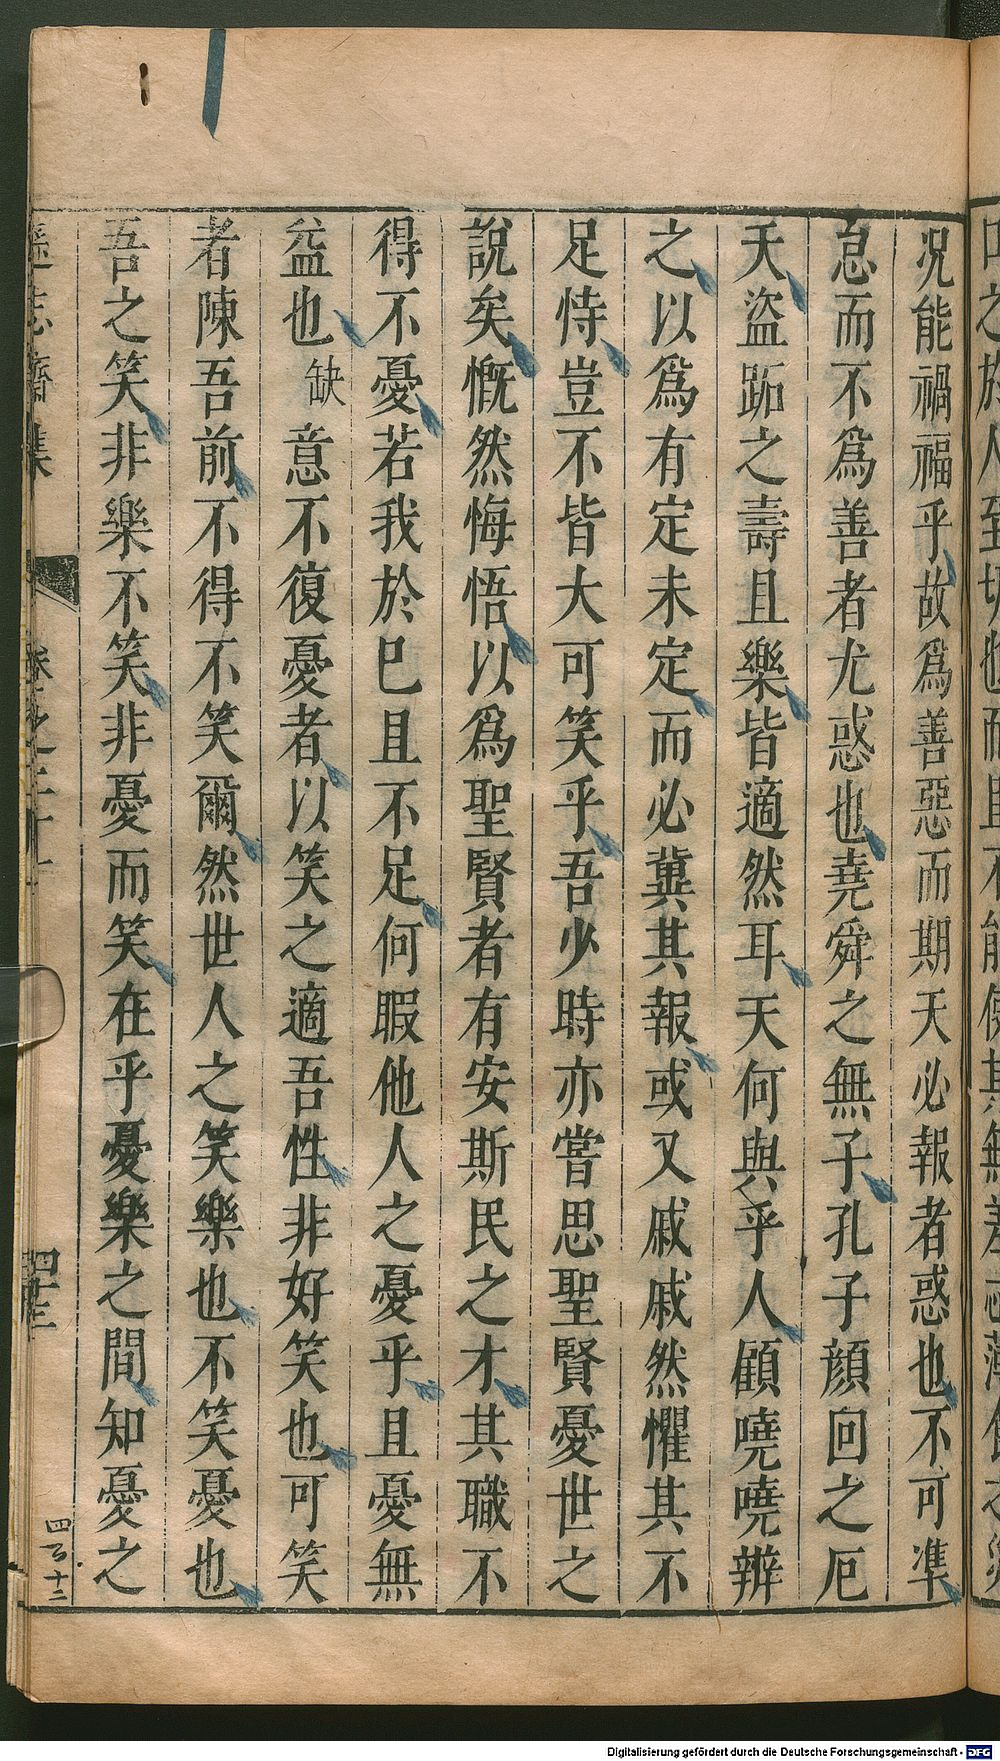 況能禍福乎故爲善惡而期天必報者惑也不可準
怠而不爲善者尤惑也堯舜之無子孔子顔回之厄
夭盜跖之壽且樂皆適然耳天何與乎人顧嘵嘵辨
之以爲有定未定而必冀其報或又戚戚然懼其不
足恃豈不皆大可笑乎吾少時亦嘗思聖賢憂世之
說矣慨然悔悟以爲聖賢者有安斯民之才其職不
得不憂若我於巳且不足何暇他人之憂乎且憂無
益也缺意不復憂者以笑之適吾性非好笑也可笑
者陳吾前不得不笑爾然世人之笑樂也不笑憂也
吾之笑非樂不笑非憂而笑在乎憂樂之間知憂之
遜志齋集
卷之二十
四十三
四百十二
Digitalisierung gefördert durch die Deutsche Forschungsgemeinschaft - DFG